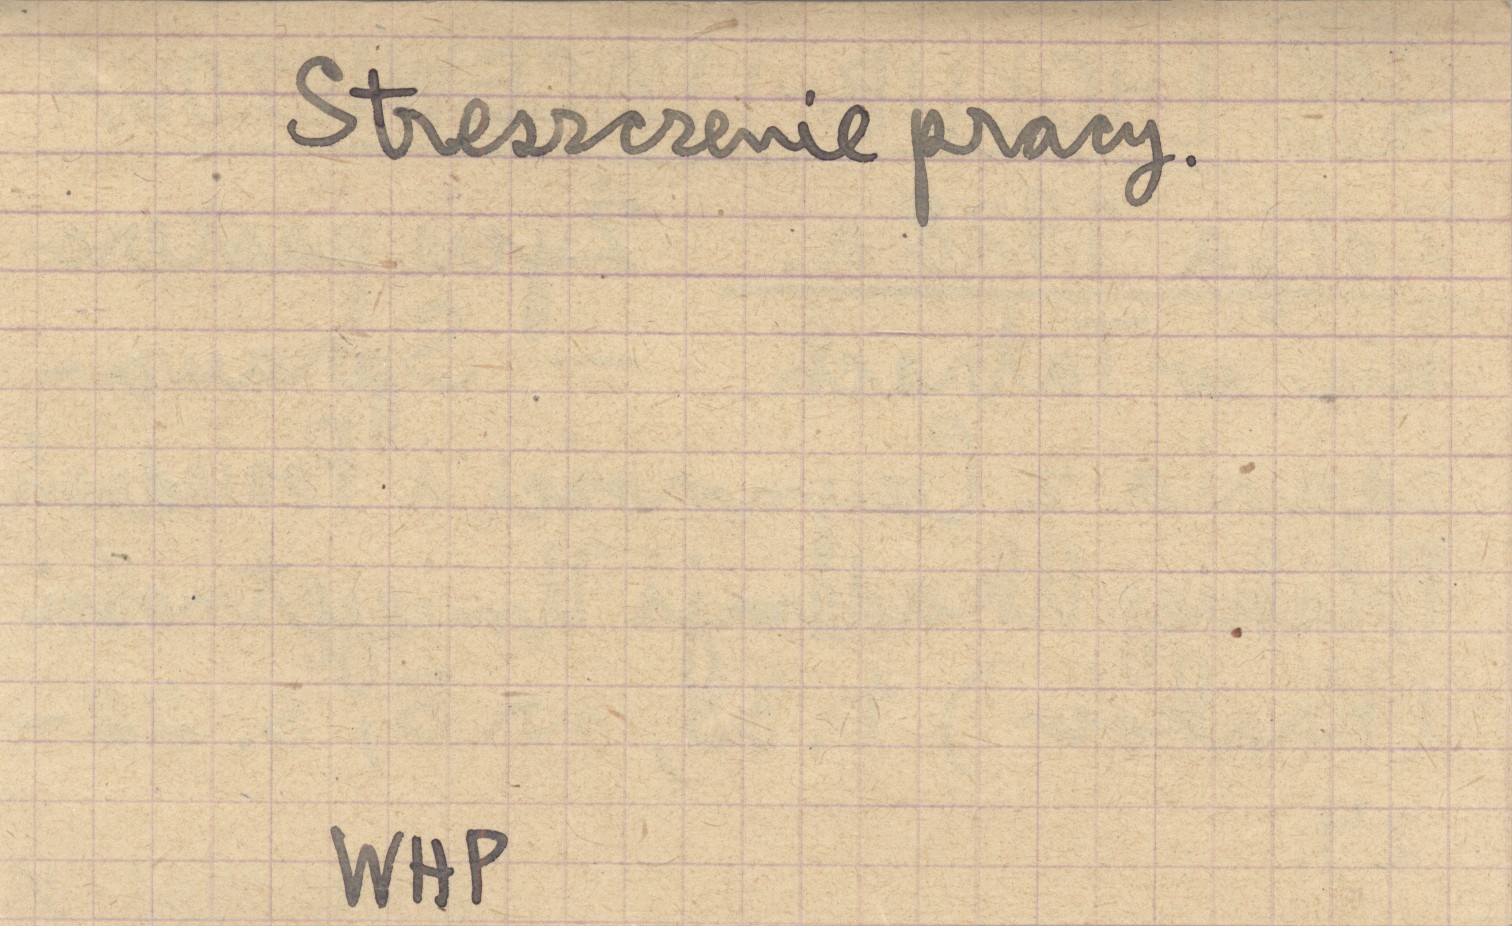 Streszczenie pracy.
WHP